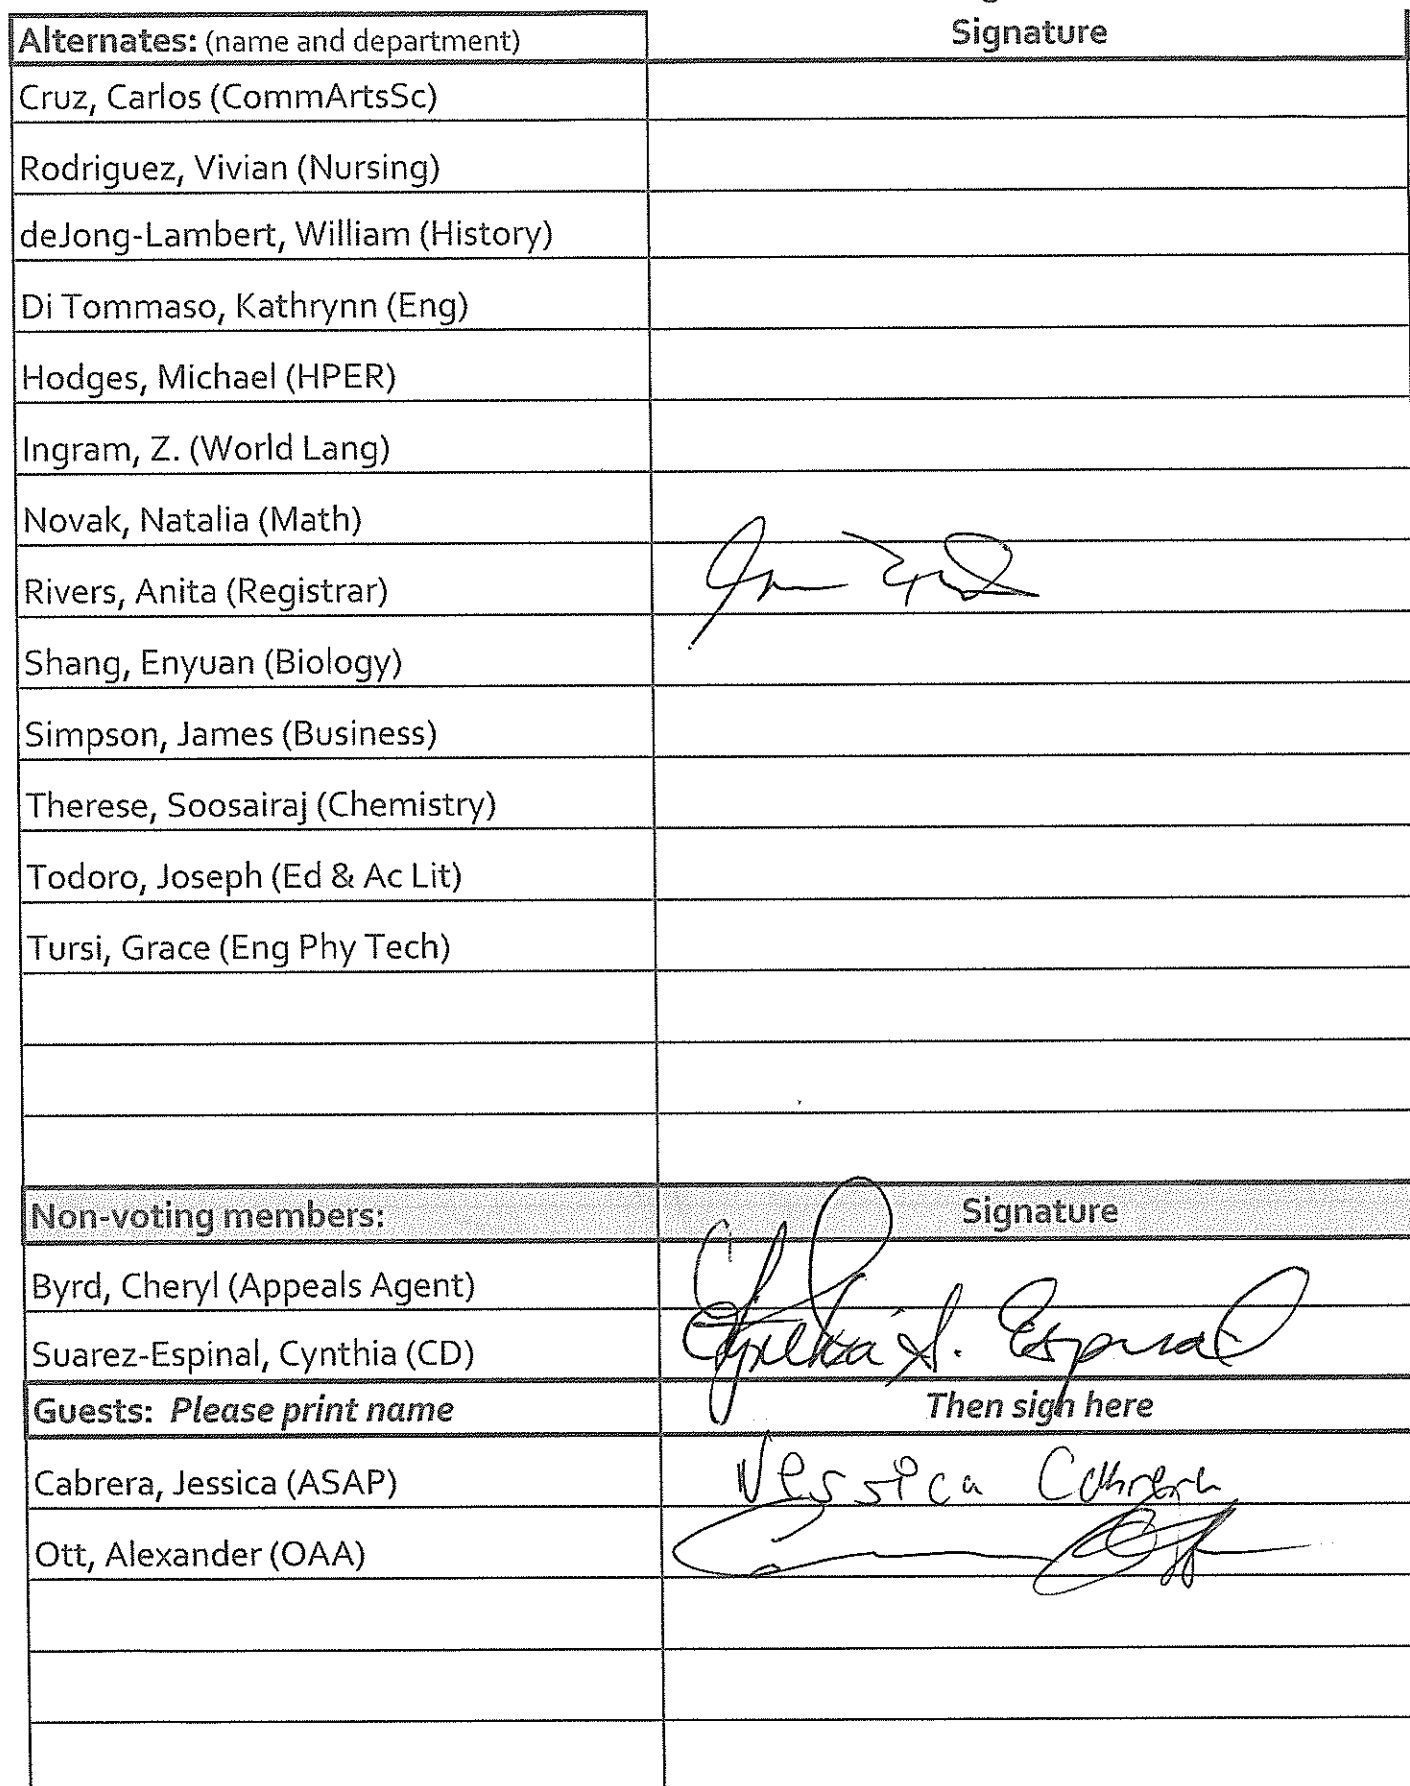 Alternates: (name and department) Signature
Cruz, Carlos (CommArtsSc)
Rodriguez, Vivian (Nursing)
deJong-Lambert, William (History)
Di Tommaso, Kathrynn (Eng)
Hodges, Michael (HPER)
Ingram, Z. (World Lang)
Novak, Natalia (Math)
Rivers, Anita (Registrar)
Shang, Enyuan (Biology)
Simpson, James (Business)
Therese, Soosairaj (Chemistry)
Todoro, Joseph (Ed & Ac Lit)
Tursi, Grace (Eng Phy Tech)
Non-voting members: Signature
Byrd, Cheryl (Appeals Agent)
Suarez-Espinal, Cynthia (CD) Cynthia S. Espinal
Guests: Please print name Then sign here
Cabrera, Jessica (ASAP) Jessica Cabrera
Ott, Alexander (OAA)